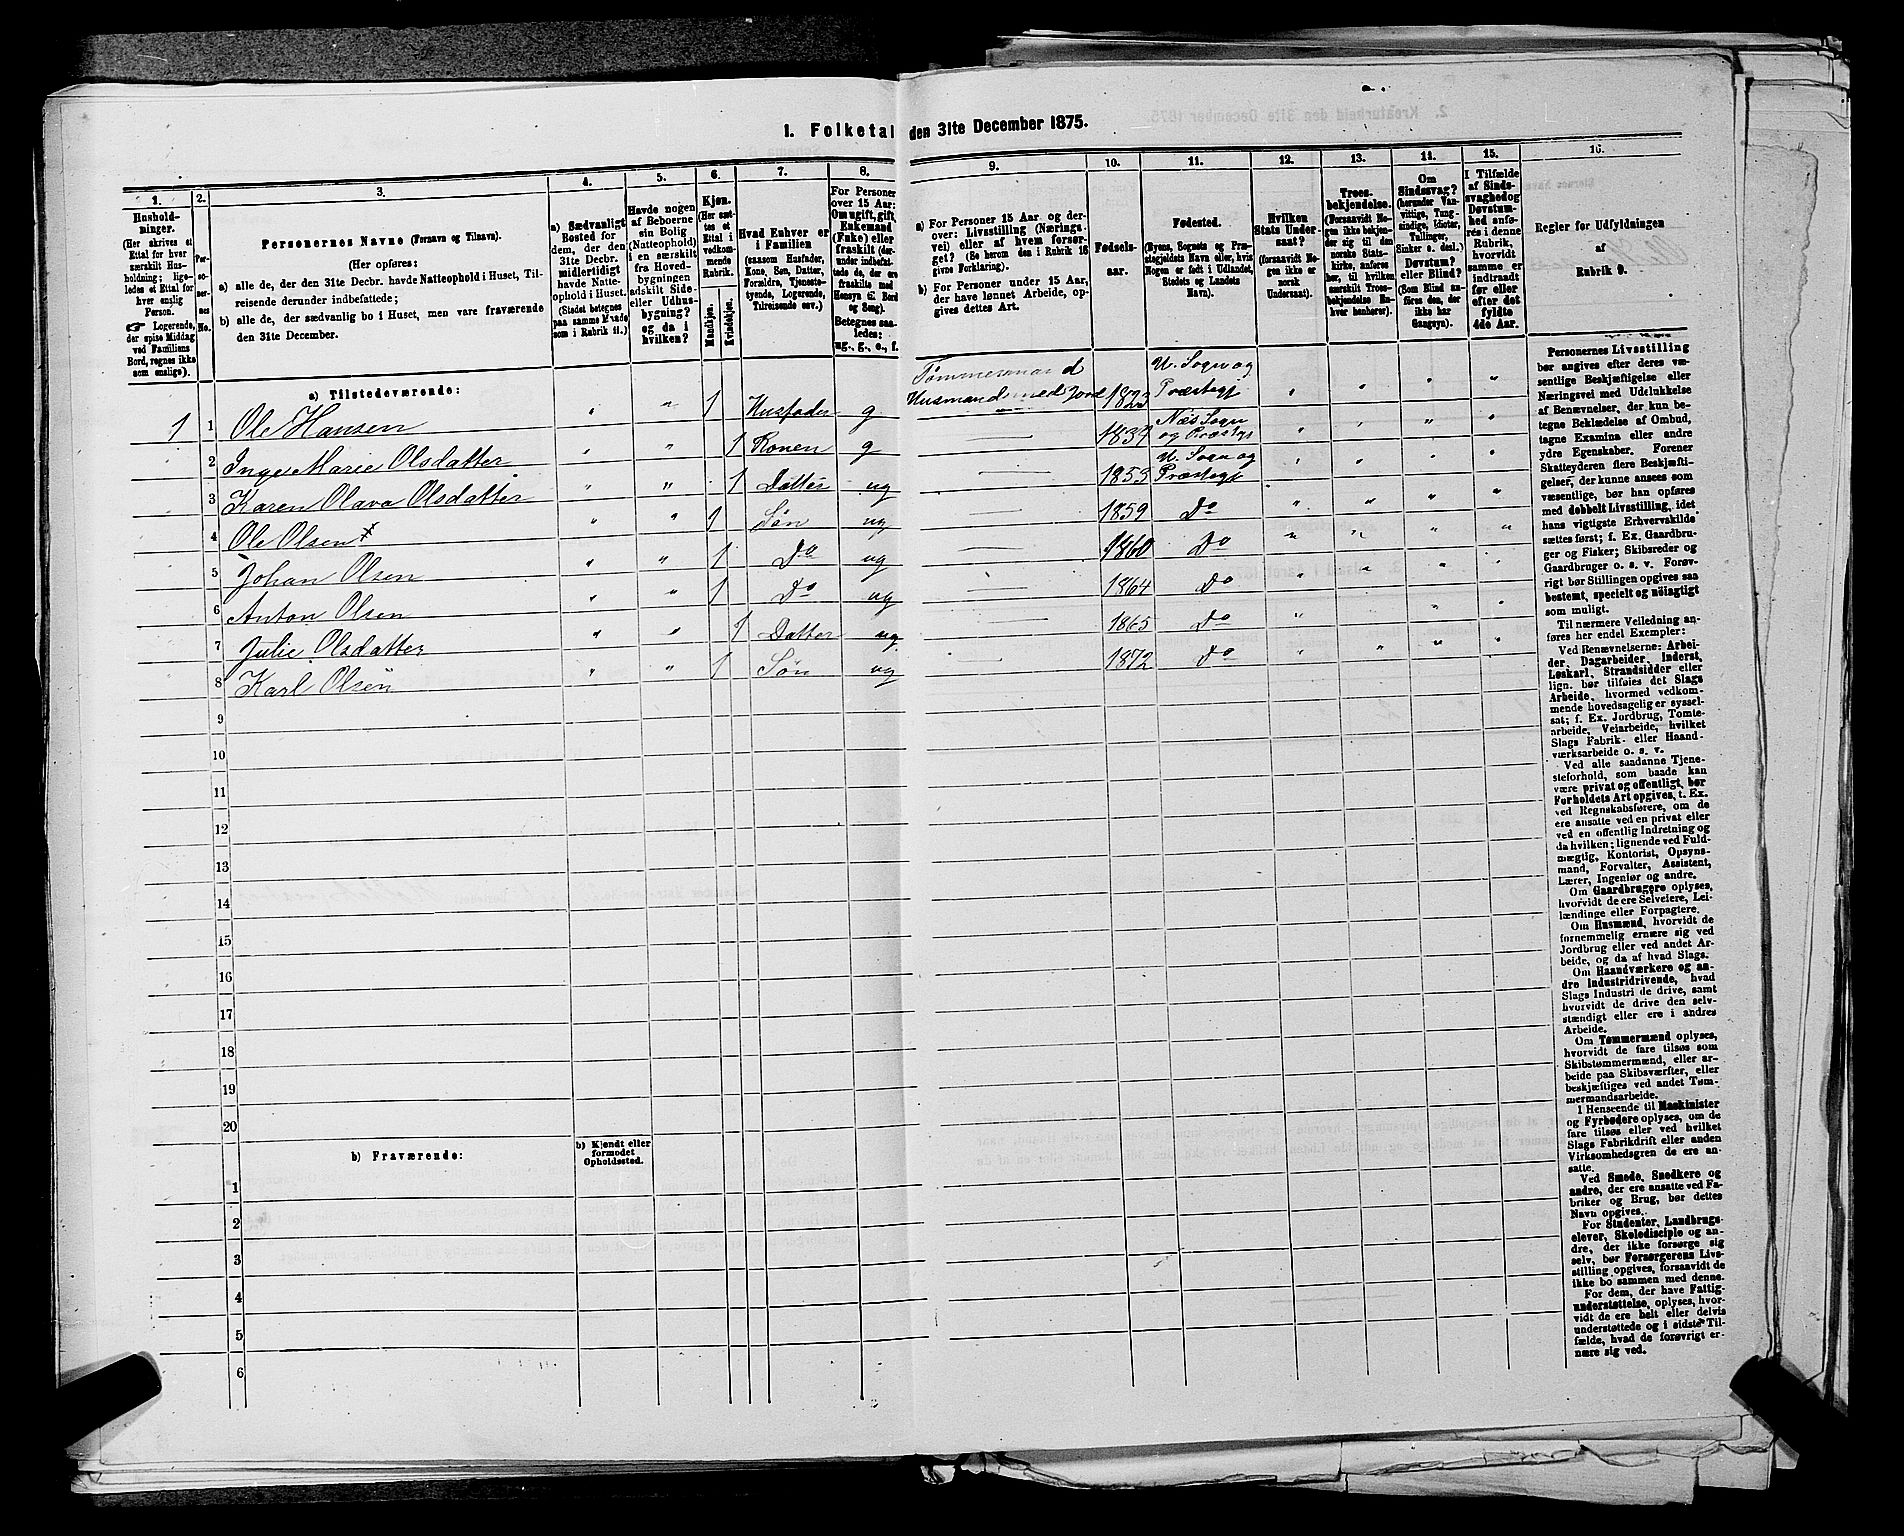 1. Folketal den 31te December 1875.
1.
Husholdninger.
(Her skrives et
Ettal for hver
særskilt Husholdning;
ligeledes et Ettal for
hver enslig
Person.
☞ Logerende,
der spise Middag
ved Familiens
Bord, regnes ikke
som enslige).
2.
Personernes No.
3.
Personernes Navne (Fornavn og Tilnavn).
(Her opføres:
a) alle de, der den 31te Decbr. havde Natteophold i Huset, Tilreisende derunder indbefattede;
b) alle de, der sædvanlig bo i Huset, men vare fraværende
den 31te December.
4.
a) Sædvanligt
Bosted for
dem, der den
31te Decbr.
midlertidigt
havde Natteophold i Huset.
(Stedet betegnes
paa samme Maade
som i Rubrik 11.)
5.
Havde nogen
af Beboerne
sin Bolig
(Natteophold)
i en særskilt
fra Hovedbygningen
adskilt Side-
eller Udhusbygning?
og da i
hvilken?
6.
Kjøn.
(Her sættes et
Ettal i
vedkommende
Rubrik.
Mandkjøn.
Kvindekjøn.
7.
Hvad Enhver er
i Familien
(saasom Husfader,
Kone, Søn, Datter,
Forældre, Tjenestetyende, Logerende,
Tilreisende osv.)
8.
For Personer
over 15 Aar:
Om ugift, gift,
Enkemand
(Enke) eller
fraskilt (derunder indbefattede de, der ere
fraskilte med
Hensyn til Bord
og Seng).
Betegnes saaledes:
ug., g., e., f.
9.
a) For Personer 15 Aar og derover: Livsstilling (Næringsvei) eller af hvem forsørget? (Se herom den i Rubrik 16
givne Forklaring).
b) For Personer under 15 Aar,
der have lønnet Arbeide, opgives dettes Art.
10.
Fødselsaar.
11.
Fødested.
(Byens, Sognets og Præstegjeldets Navn eller, hvis
Nogen er født i Udlandet,
Stedets og Landets
Navn).
12.
Hvilken
Stats Undersaat?
(forsaavidt Nogen ikke er
norsk
Undersaat).
13.
Troesbekjendelse.
(Forsaavidt Nogen ikke bekjender sig til den
norske Statskirke, anføres
her, til hvilken
særskilt Troesbekjendelse Enhver henhører).
14.
Om
Sindssvag?
(herunder Vanvittige, Tungsindige, Idioter,
Tullinger,
Sinker o. desl.)
Døvstum?
eller Blind? (Som Blind anføres den, der
ikke har
Gangsyn).
15.
I Tilfælde
af Sindssvaghed og
Døvstumhed anføres i denne
Rubrik,
hvorvidt
samme er
indtraadt
før eller
efter det
fyldte
4de Aar.
16.
Regler for Udfyldningen
af
Rubrik 9.
a) Tilstedeværende:
1 1 Ole Hansen " " 1 Husfader g Tømmermand Husmand med Jord 1823 U. Sogn og Præstegj " " " "
2 Inge Marie Olsdatter " " 1 Konen g — 1837 Næs Sogn og Præstgj " " " "
3 Karen Olava Olsdatter " " 1 Datter ug — 1853 U. Sogn og Præstegj " " " "
4 Ole Olsen x " " 1 Søn ug — 1859 Do " " " "
5 Johan Olsen " " 1 Do ug — 1860 Do " " " "
6 Anton Olsen " " 1 Do ug — 1864 Do " " " "
7 Julie Olsdatter " " 1 Datter ug — 1865 Do " " "
8 Karl Olsen " " 1 Søn ug — 1872 Do " " " "
9
10
11
12
13
14
15
16
17
18
19
20
b) Fraværende:
b) Kjendt eller
formodet
Opholdssted.
1
2
3
4
5
6
Personernes Livsstilling
bør angives efter deres væsentlige Beskjæftigelse eller
Næringsvei med Udelukkelse
af Benævnelser, der kun betegne Beklædelse af Ombud,
tagne Examina eller andre
ydre Egenskaber. Forener
Skatteyderen flere Beskjæftigelser, der kunne ansees som
væsentlige, bør han opføres
med dobbelt Livsstilling, idet
hans vigtigste Erhvervskilde
sættes først; f. Ex. Gaardbruger og Fisker; Skibsreder og
Gaardbruger o. s. v. Forøvrigt bør Stillingen opgives saa
bestemt, specielt og nøiagtigt
som muligt.
Til nærmere Veiledning anføres her endel Exempler:
Ved Benævnelserne: Arbeider, Dagarbeider, Inderst,
Løskarl, Strandsidder eller
lign. bør tilføies det Slags
Arbeide, hvormed vedkommende hovedsagelig er sysselsat; f. Ex. Jordbrug, Tomtearbeide, Veiarbeide, hvilket
Slags Fabrik- eller Haandværksarbeide o. s. v.
Ved alle saadanne Tjenesteforhold, som baade kan
være privat og offentligt, bør
Forholdets Art opgives, t. Ex.
ved Regnskabsførere, om de
ere ansatte ved en privat eller
ved en offentlig Indretning og
da hvilken; lignende ved Fuldmægtig, Kontorist, Opsynsmand, Forvalter, Assistent,
Lærer, Ingeniør og andre.
Om Gaardbrugere oplyses,
hvorvidt de ere Selveiere, Leilændinge eller Forpagtere.
Om Husmænd, hvorvidt de
fornemmelig ernære sig ved
Jordbrug eller ved andet Arbeide, og da af hvad Slags.
Om Haandværkere og andre Industridrivende, hvad
Slags Industri de drive, samt
hvorvidt de drive den selvstændigt eller ere i andres
Arbeide.
Om Tømmermænd oplyses,
hvorvidt de fare tilsøs som
Skibstømmermænd, eller arbeide paa Skibsværfter, eller
beskjæftiges ved andet Tømmermandsarbeide.
I Henseende til Maskinister
og Fyrbødere oplyses, om de
fare tilsøs eller ved hvilket
Slags Fabrikdrift eller anden
Virksomhedsgren de ere ansatte.
Ved Smede, Snedkere og
andre, der ere ansatte ved Fabriker og Brug, bør dettes
Navn opgives.
For Studenter, Landbrugselever, Skoledisciple og andre, der ikke forsørge sig
selv, bør Forsørgerens Livsstilling opgives, forsaavidt de
ikke bo sammen med denne.
For dem, der have Fattigunderstøttelse, oplyses, hvorvidt de ere helt eller delvis
understøttede og i sidste Tilfælde, hvad de forøvrigt ernære sig ved.